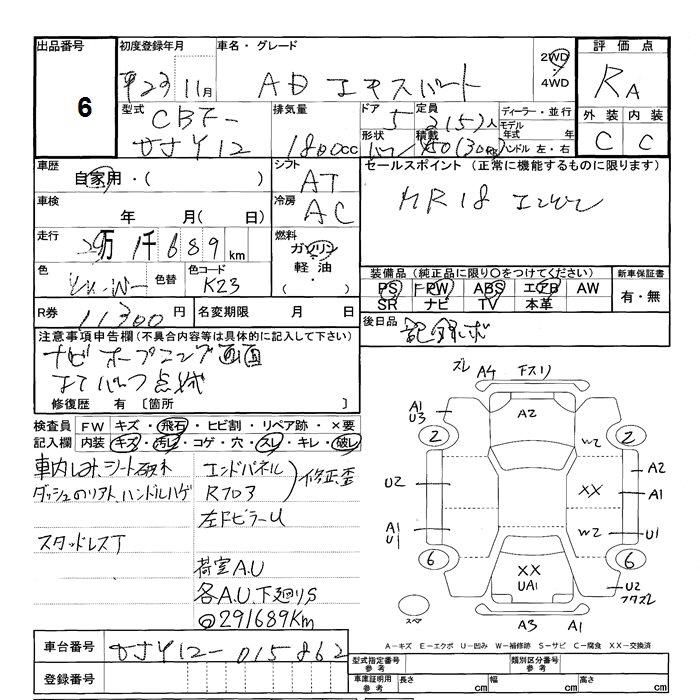 出品番号 初度登録年月 車名・グレード 2WD 4WD 評価点
6 平23 11月 AD エキスパート RA
型式 CBF- 排気量 ドア 5 定員 2(5)人 ディーラー・並行
モデル年式 年
外装 内装
1800cc 形状 バン 積載 ハンドル 左・右 C C
車歴 自家用・( ) シフト AT セールスポイント(正常に機能するものに限ります)
MR18 エンジン
車検 年 月( 日) 冷房 AC
走行 29万1千689km 燃料 ガソリン・軽油・( )
色 色替 色コード K23 装備品(純正品に限り○をつけてください) 新車保証書
PS F-PW ABS エアB AW 有・無
SR ナビ TV 本革
R券 11300円 名変期限 月 日 後日品 記録ボ
注意事項申告欄(不具合内容等は具体的に記入して下さい)
ナビオープニング画面
修復歴 有〔箇所 〕
検査員記入欄 FW キズ・飛石・ヒビ割・リペア跡・×要
内装 キズ・汚レ・コゲ・穴・スレ・キレ・破レ
車内しみ、シート破れ エンドパネル 修正歪
ダッシュのりアト、ハンドルハゲ Rフロア
左FピラーU
スタッドレスT
荷室A.U
各A.U.下廻りS
@291689Km
ズレ A4 下スリ
A1 U3 A2
2 W2 2
A2
U2 XX A1
A1 U1 W2 U1
6 XX UA1 6
U2
スペア A3 A1
A-キズ E-エクボ U-凹み W-補修跡 S-サビ C-腐食 XX-交換済
車台番号 015862
登録番号
型式指定番号 参考 類別区分番号 参考
車庫証明用 参考 長さ cm 幅 cm 高さ cm